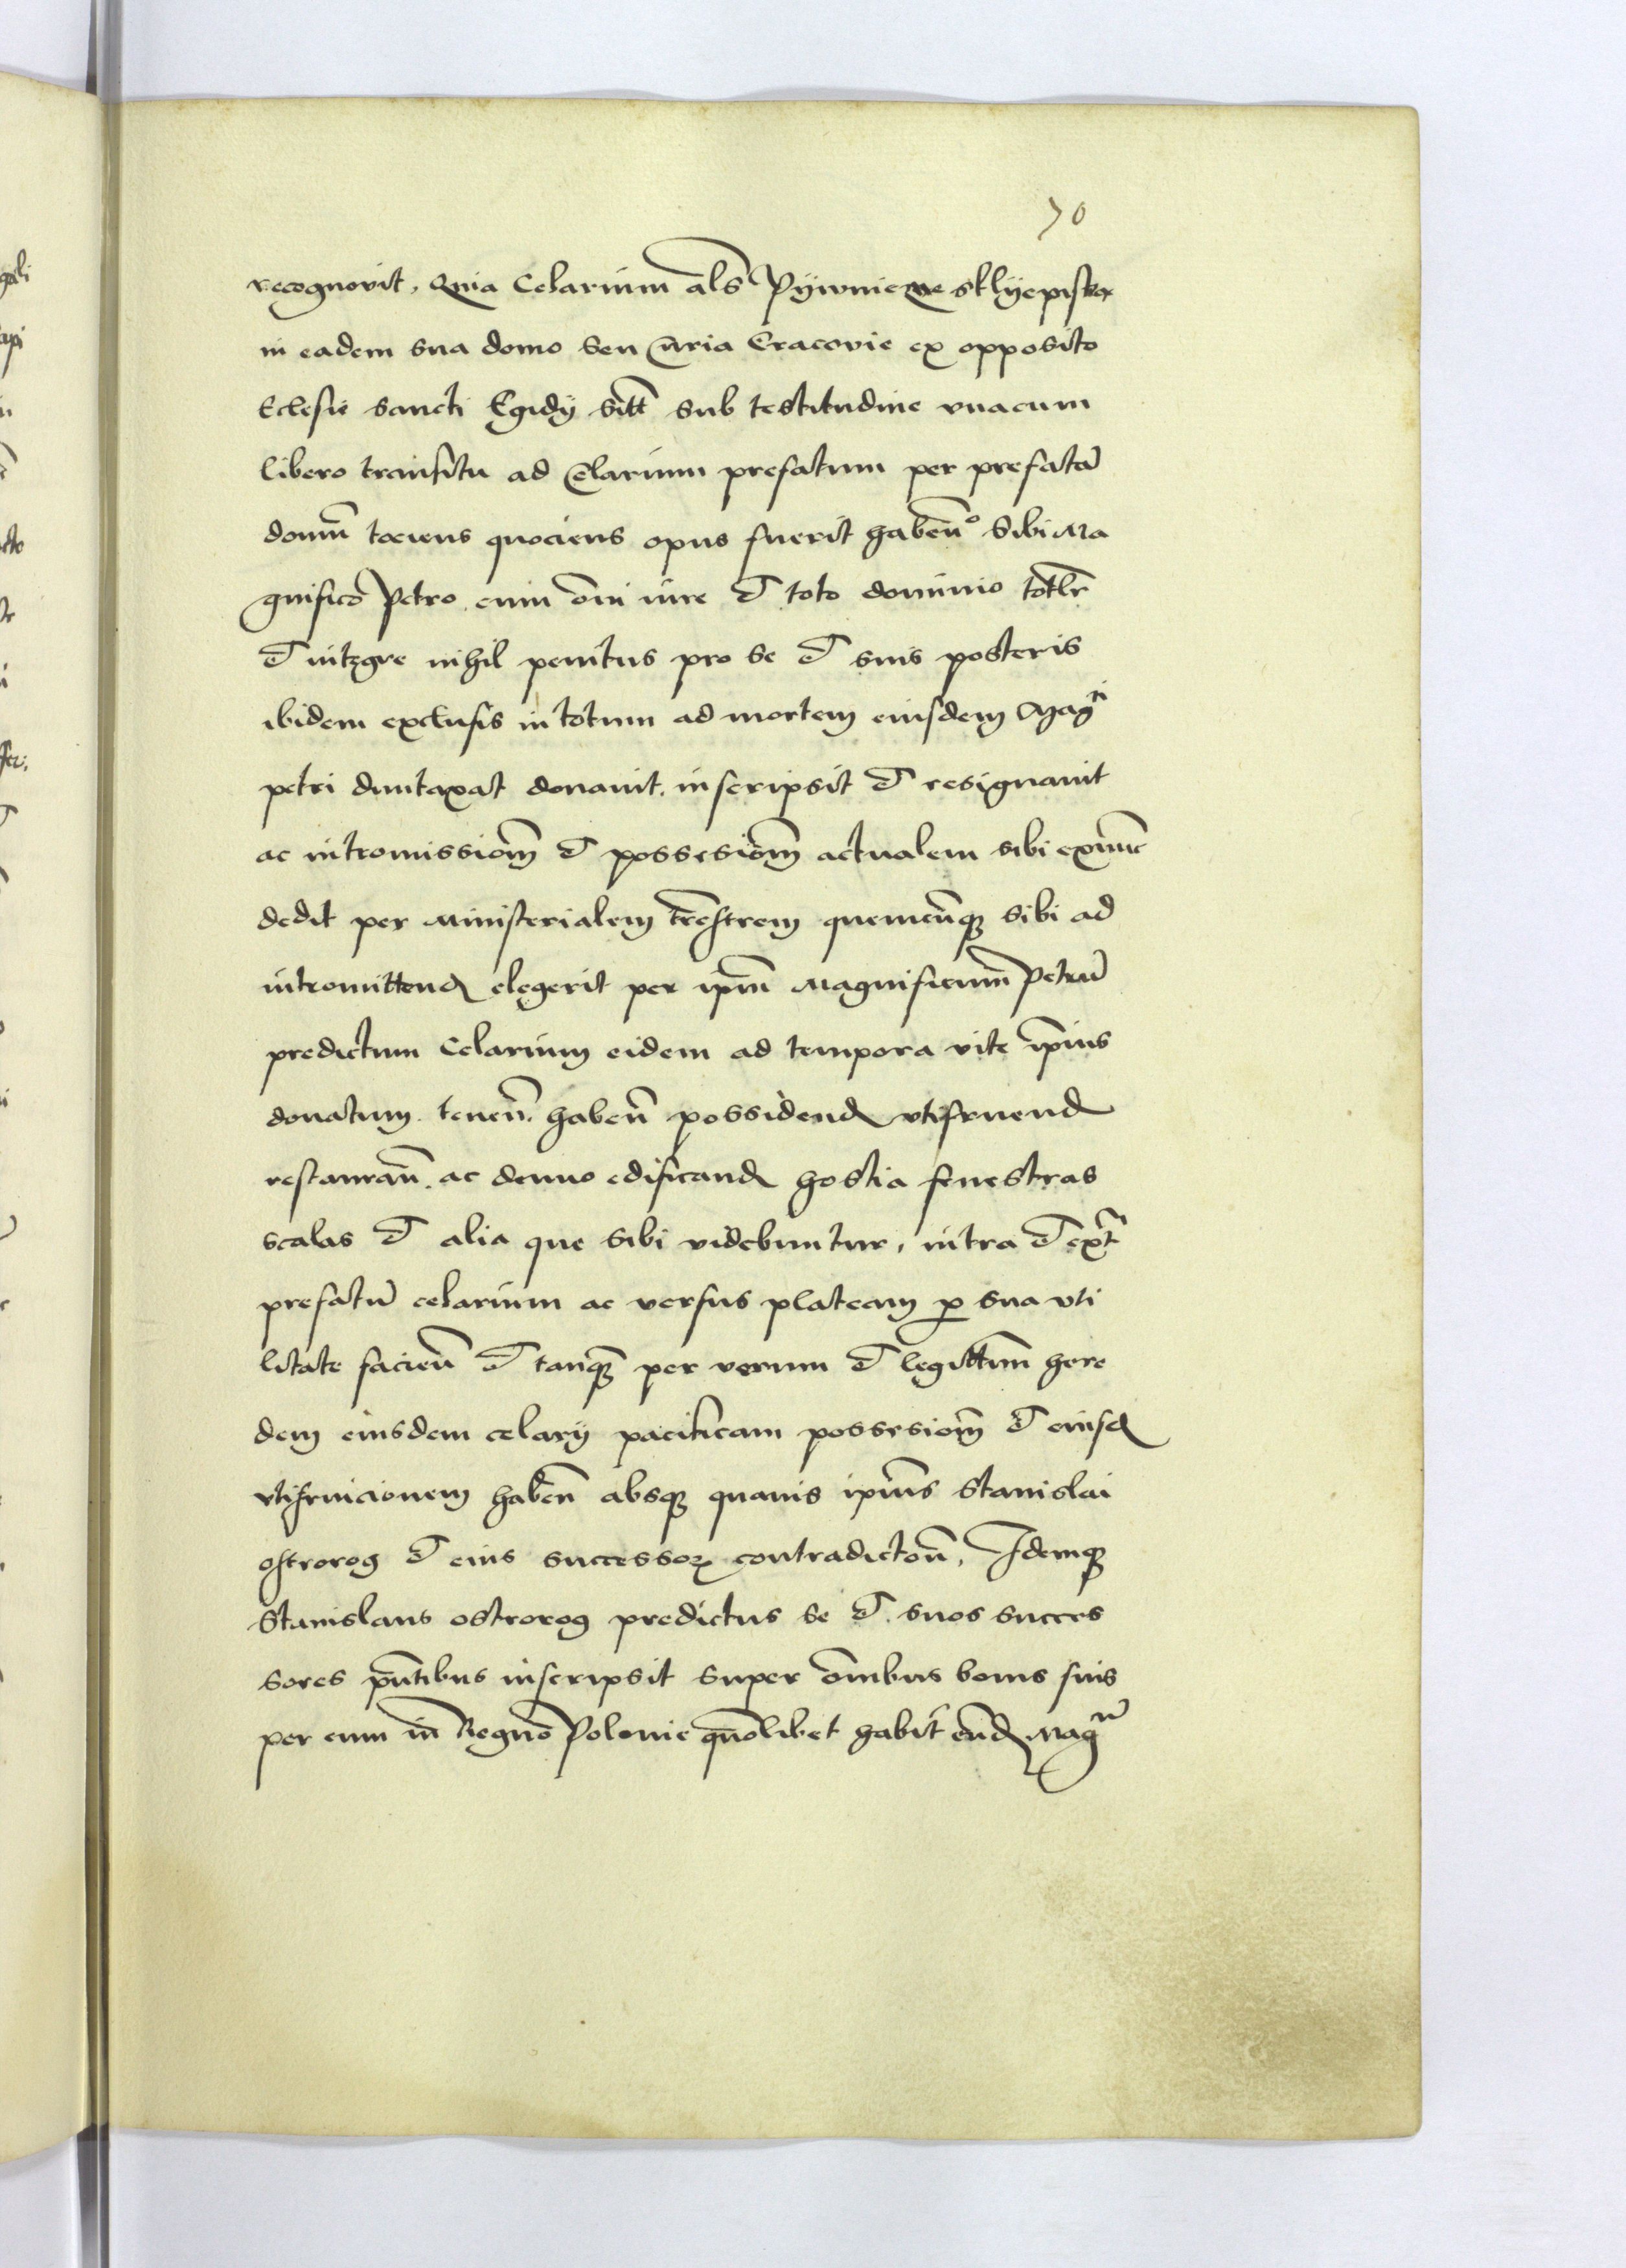 70
recognovit, Quia Celarium als Pÿwnicze sklÿepiste
in eadem sua domo seu Curia Cracovie ex opposito
Eclesie sancti Egidÿ sitt̄ sub testitudine vnacum
libero transitu ad Celarium prefatum per prefatā
domū tociens quociens opus fuerit habenº sibi Ma
gnifico Petro cum om̄i iure et toto dominio totlr̄
et integre nihil penitus pro se et suis posteris
ibidem exclusis in totum ad mortem eiusdem Magci
petri duntaxat donauit inscripsit et resignauit
ac intromissiom̄ et possesiom̄ actualem sibi exnuc̄
dedit per Ministerialem trr̄estrem quemcūq̨ sibi ad
intromittend elegerit per ip̄m Magnificum̄ Petrū
predictum Celarium eidem ad tempora vite ip̄ius
donatum. tenen̄. haben̄ possidend vtifruend
restauran̄. ac denuo edificand hostia fenestras
scalas et alia que sibi videbuntur, intra et extr̄
prefatū celarium ac versus plateam ꝑ sua vti
litate facien̄ et tanq̨̄ per verum et legittim̄ here
dem eiusdem celarÿ pacificam possesiom̄ et eiusd
vtifruicionem haben̄ absq̨ quauis ip̄ius Stanislai
ostrorog et eius successoꝝ contradictoīe, Idemq̨
Stanislaus ostrorog predictus se et suos succes
sores pn̄tibus inscripsit super om̄ibus bonis suis
per eum in̄ Regno Polonie quo̅libet habit̄ eund Magcū